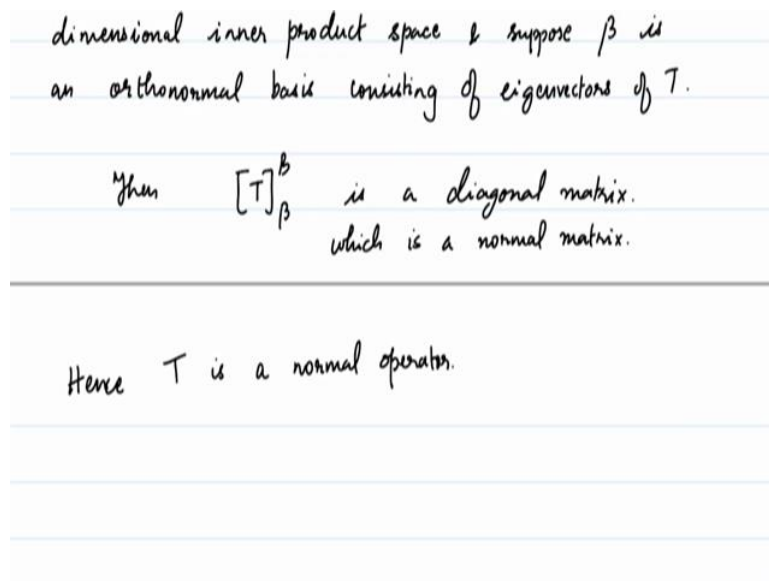 dimensional inner product space & suppose β is
an orthonormal basis consisting of eigenvectors of T.
Then [T]_β^β is a diagonal matrix.
which is a normal matrix.
Hence T is a normal operator.